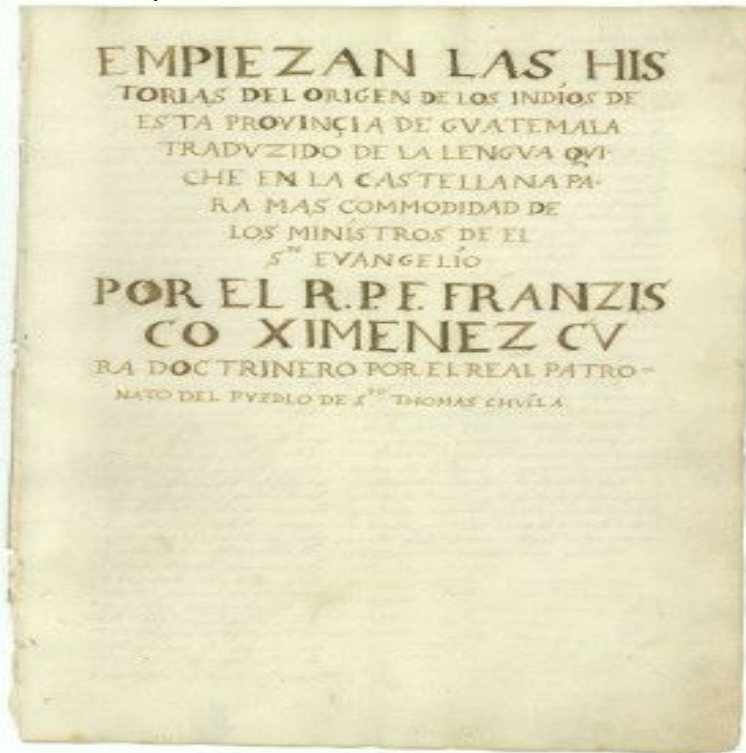 EMPIEZAN LAS HIS
TORIAS DEL ORIGEN DE LOS INDÍOS DE
ESTA PROVINÇIA DE GVATEMALA
TRADVZIDO DE LA LENGVA QVI-
CHE EN LA CASTELLANA PA-
RA MAS COMMODIDAD DE
LOS MINÍSTROS DE EL
S.TO EVANGELÍO
POR EL R.P.F. FRANZIS
CO XIMENEZ CV
RA DOCTRINERO POR EL REAL PATRO-
NATO DEL PVEBLO DE S.TO THOMAS CHVÍLA